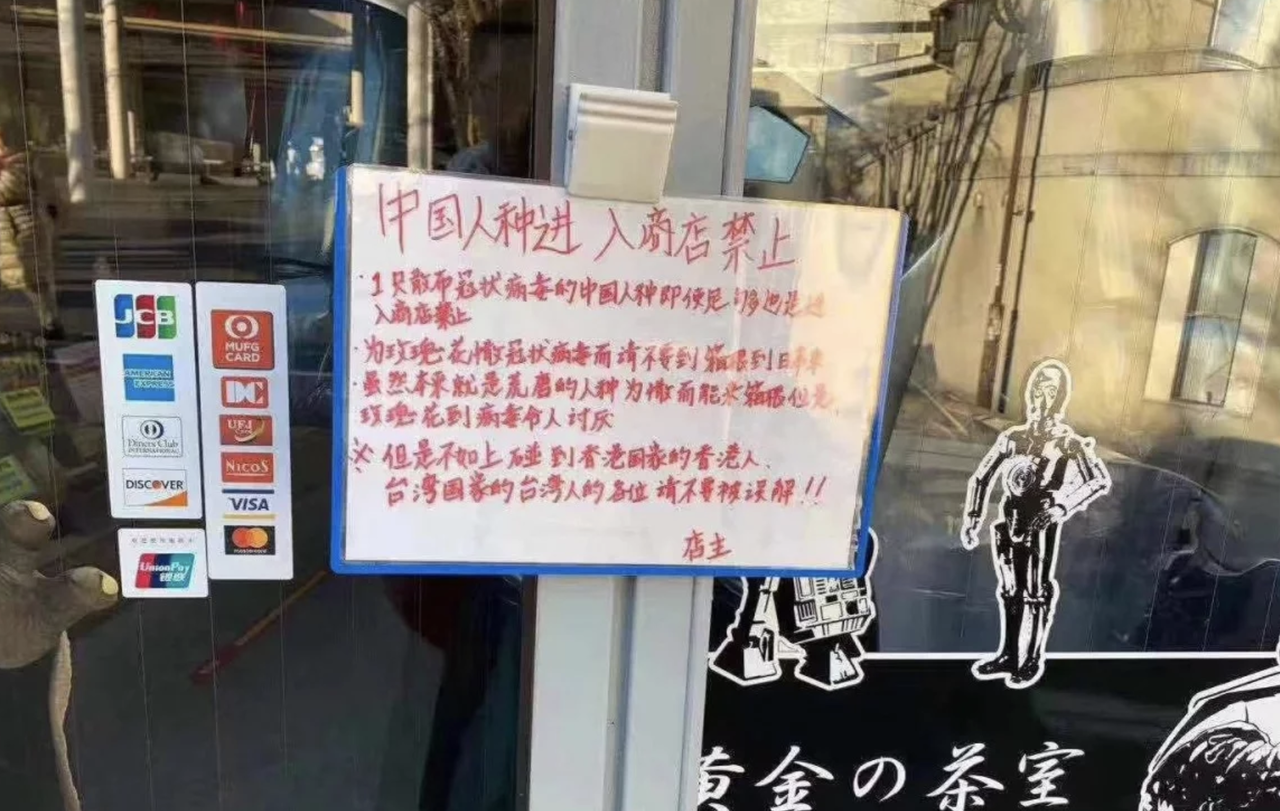 中国人种进入商店禁止
·1只散布冠状病毒的中国人种即便是 也是进
入商店禁止
·为玫瑰花憎冠状病毒而请不要到箱根到日本来
·虽然本来就是荒磨的人种为憎而能来箱根但是、
玫瑰花到病毒令人讨厌
※但是不如上碰到香港国家的香港人、
台湾国家的台湾人的各位请不要被误解!!
店主
JCB
AMERICAN EXPRESS
Diners Club INTERNATIONAL
DISCOVER
UnionPay
银联
MUFG CARD
DC
UFJ Card
NICOS
VISA
mastercard
黄金の茶室